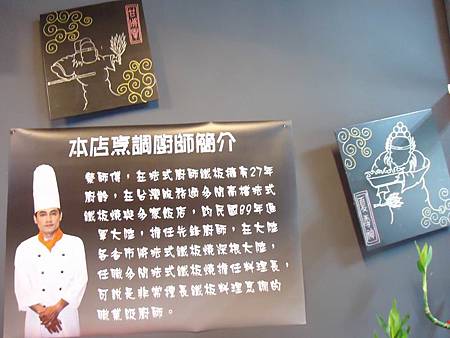 本店烹調廚師簡介
師傅，在港式廚師鐵板擁有27年
廚齡，在台灣服務過多間高檔港式
鐵板燒與多家飯店，於民國89年進
軍大陸，擔任先鋒廚師，在大陸
各省市將港式鐵板燒深根大陸，
任職多間港式鐵板燒擔任料理長，
可說是非常擅長鐵板料理烹調的
職業級廚師。